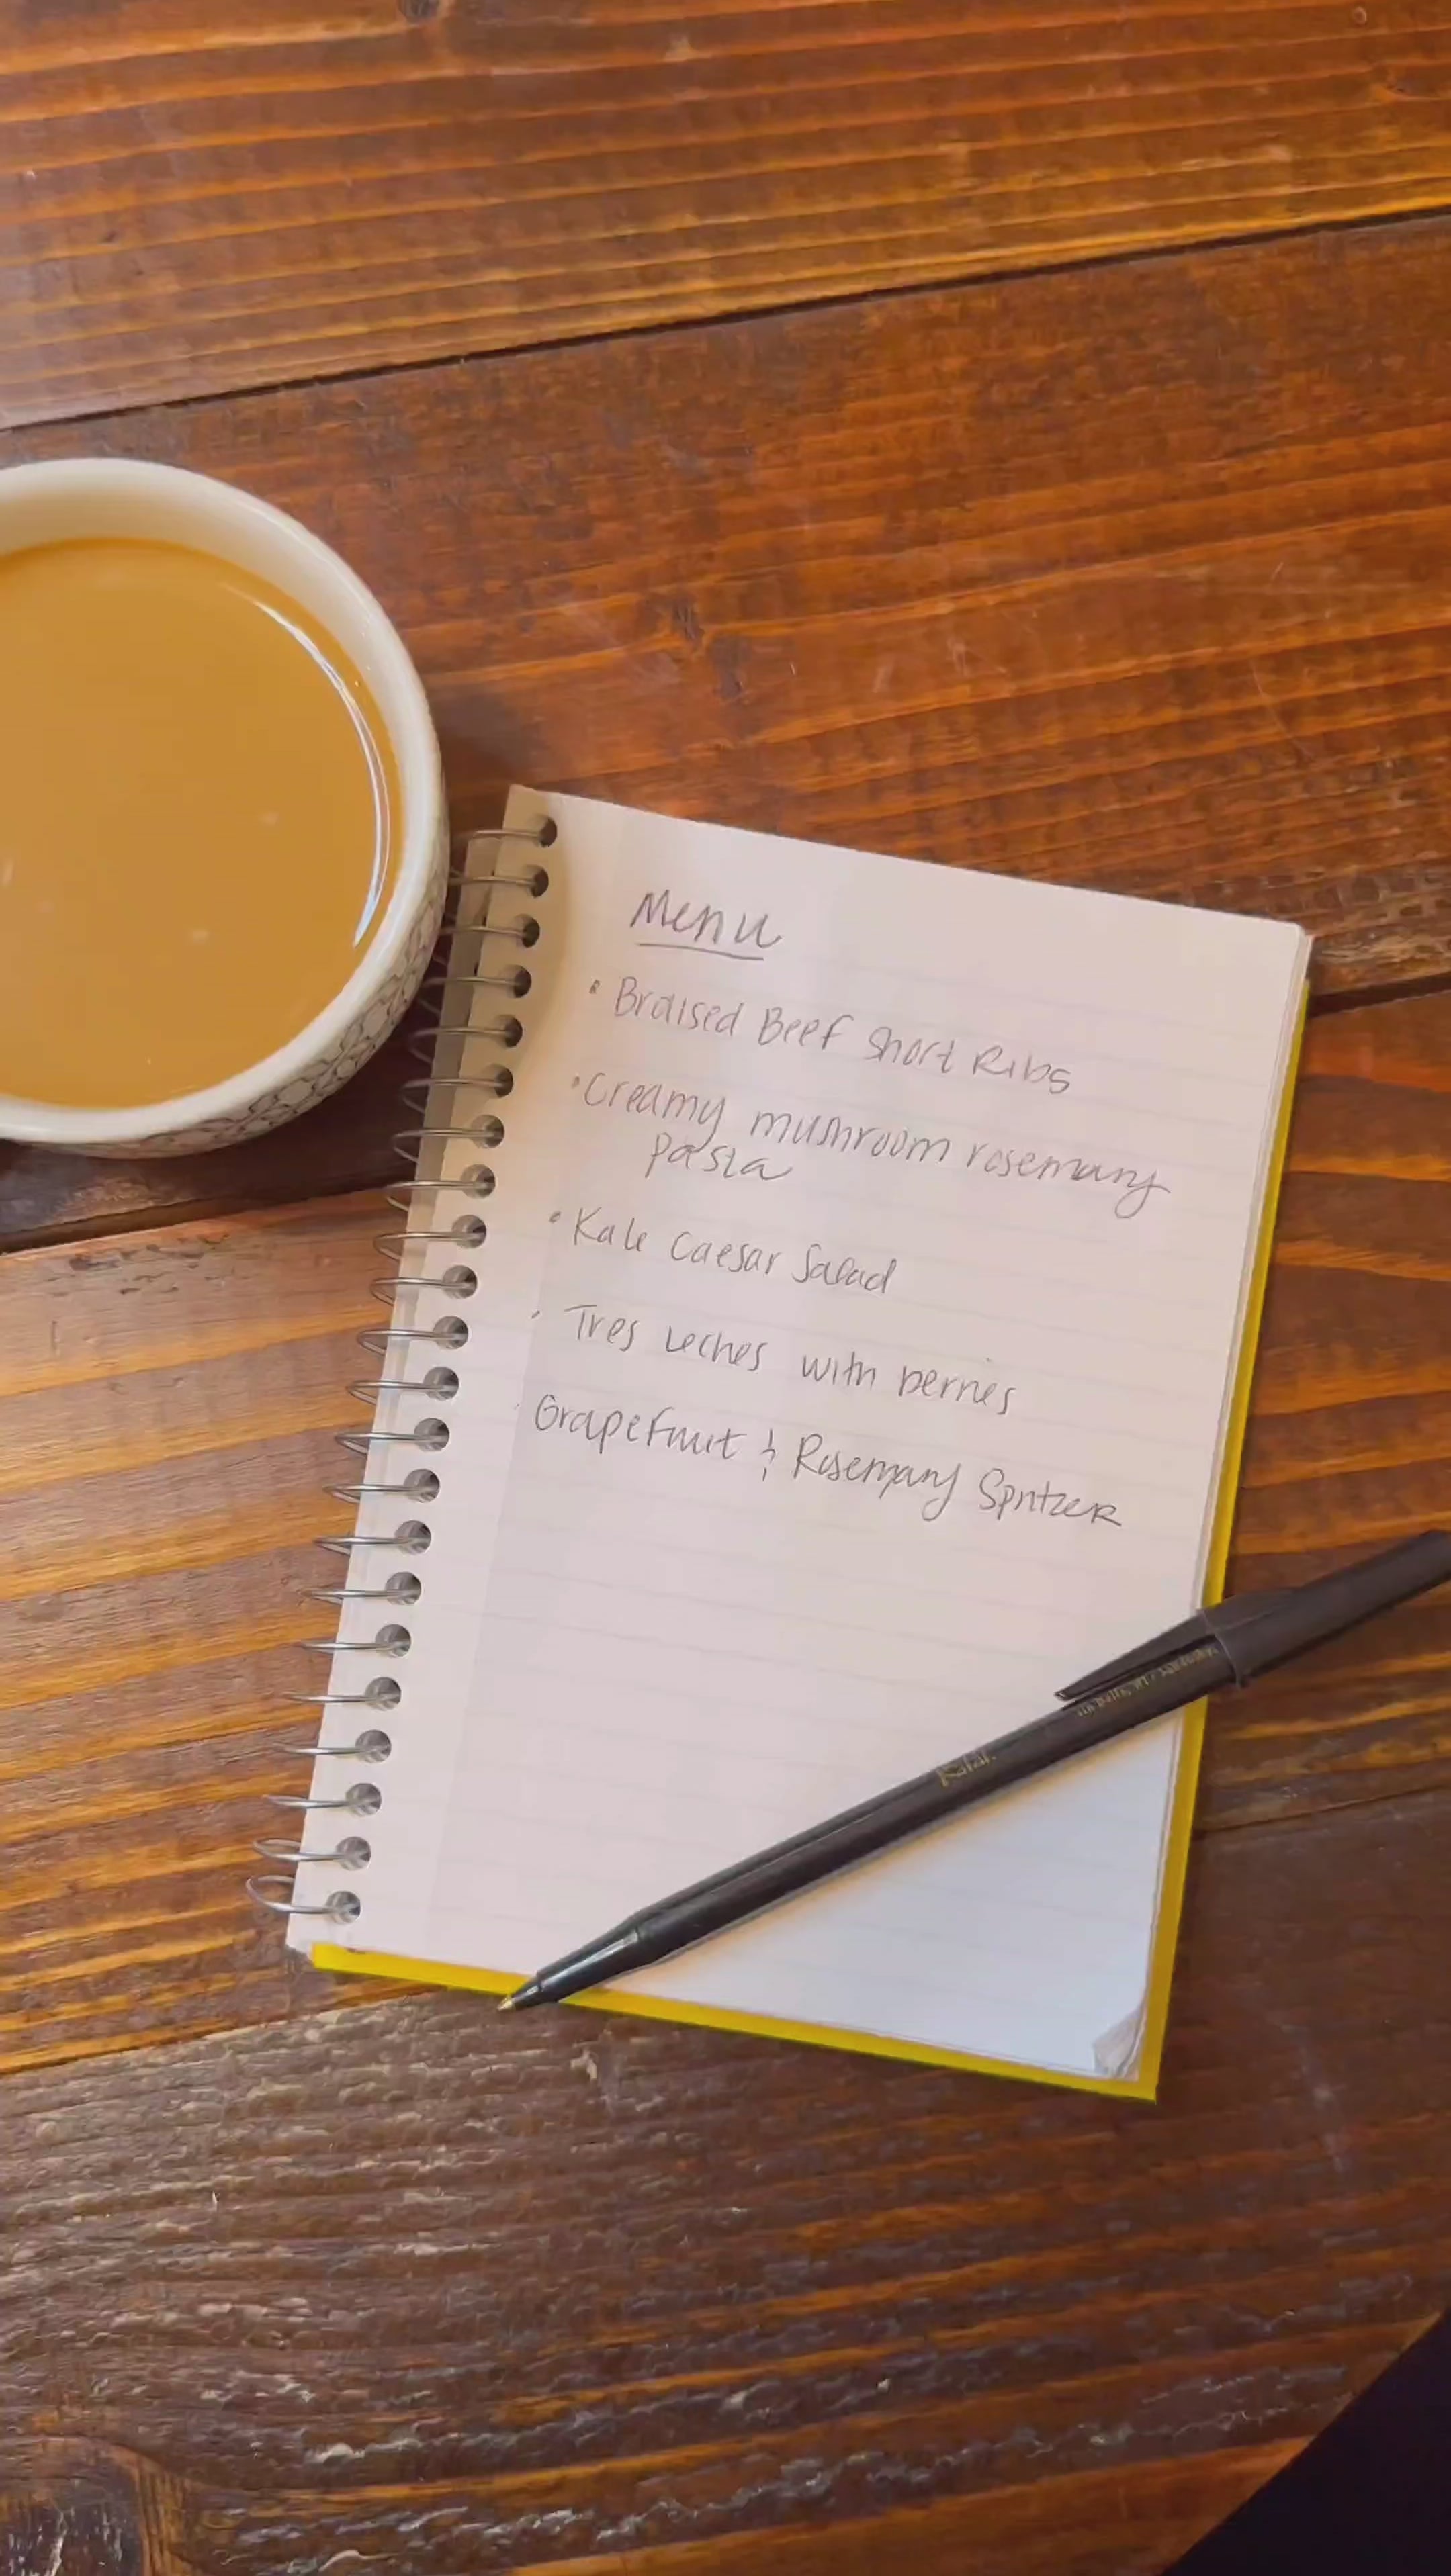 Menu
• Braised Beef Short Ribs
• Creamy mushroom rosemary
pasta
• Kale Caesar Salad
• Tres Leches with berries
Grapefruit & Rosemary Spritzer